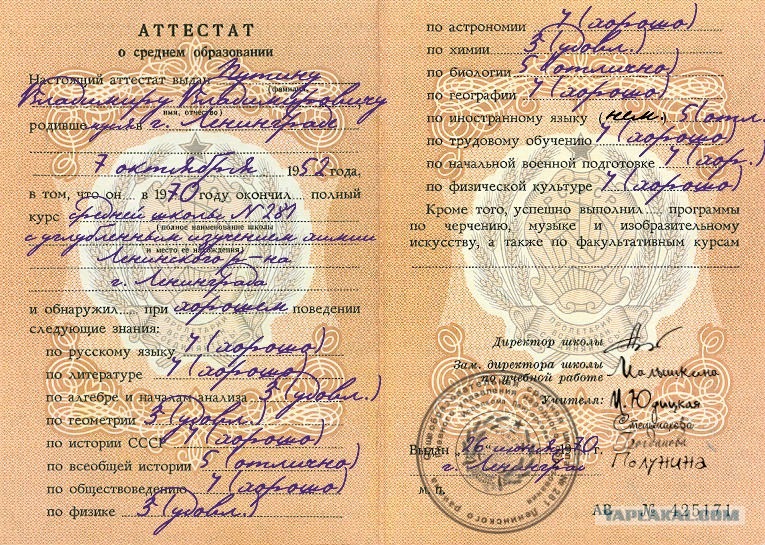 АТТЕСТАТ
о среднем образовании
Настоящий аттестат выдан Путину
(фамилия,
Владимиру Владимировичу
имя, отчество)
родившемуся в г. Ленинграде
7 октября 1952 года,
в том, что он в 1970 году окончил полный
курс средней школы № 281
(полное наименование школы
с углубленным изучением химии
и место её нахождения)
Ленинского р-на
г. Ленинграда
и обнаружил при хорошем поведении
следующие знания:
по русскому языку 4 (хорошо)
по литературе 4 (хорошо)
по алгебре и началам анализа 3 (удовл.)
по геометрии 3 (удовл.)
по истории СССР 4 (хорошо)
по всеобщей истории 5 (отлично)
по обществоведению 4 (хорошо)
по физике 3 (удовл.)
по астрономии 4 (хорошо)
по химии 3 (удовл.)
по биологии 5 (отлично)
по географии 4 (хорошо)
по иностранному языку (нем.) 5 (отл.
по трудовому обучению 4 (хорошо)
по начальной военной подготовке 4 (хор.)
по физической культуре 4 (хорошо)
Кроме того, успешно выполнил программы
по черчению, музыке и изобразительному
искусству, а также по факультативным курсам
Директор школы
Зам. директора школы
по учебной работе
Учителя: И. Юдицкая
Полунина
Выдан „26 июня 1970 г.
г. Ленинград
м. п.
АВ № 425171
YAPLAKAL.COM